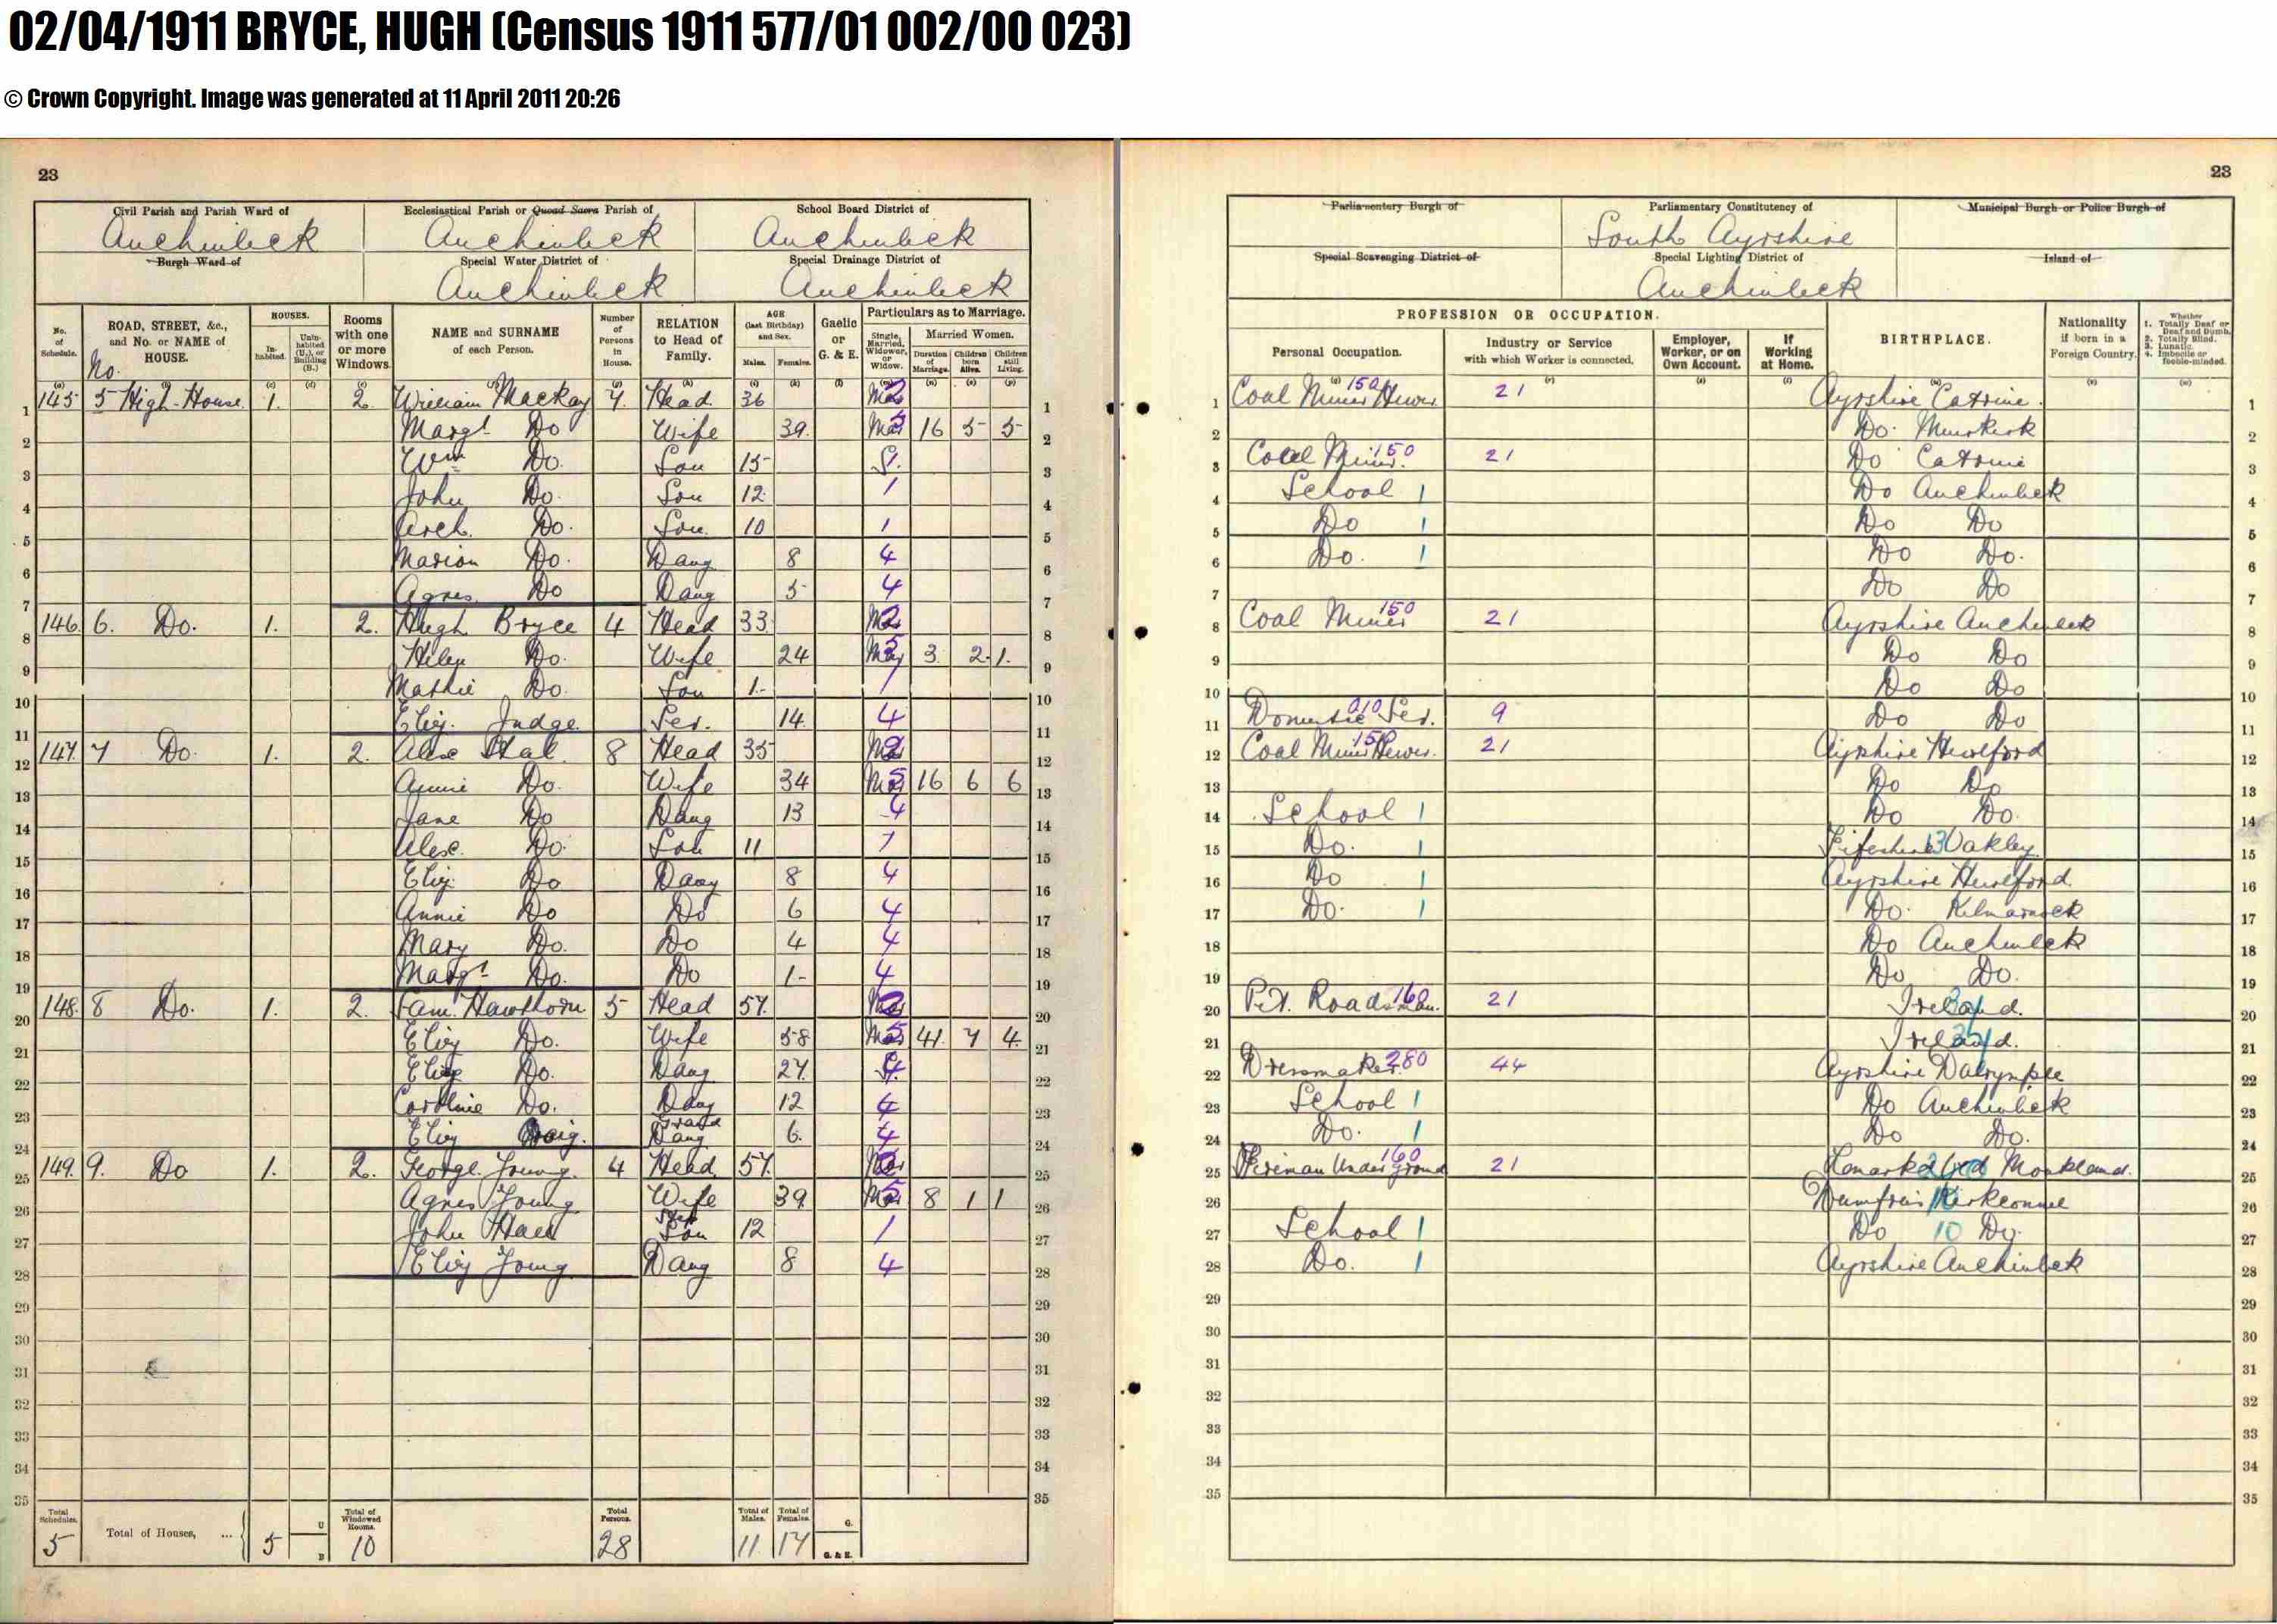 02/04/1911 BRYCE, HUGH (Census 1911 577/01 002/00 023)
© Crown Copyright. Image was generated at 11 April 2011 20:26
23
Civil Parish and Parish Ward of Auchinleck
Ecclesiastical Parish or Quoad Sacra Parish of Auchinleck
School Board District of Auchinleck
Burgh Ward of
Special Water District of Auchinleck
Special Drainage District of Auchinleck
No. of Schedule.
ROAD, STREET, &c., and No. or NAME of HOUSE.
No.
HOUSES.
Inhabited.
Uninhabited (U.), or Building (B.)
Rooms with one or more Windows
NAME and SURNAME of each Person.
Number of Persons in House.
RELATION to Head of Family.
AGE (last Birthday) and Sex.
Males. Females.
Gaelic or G. & E.
Particulars as to Marriage.
Single, Married, Widower, or Widow.
Married Women.
Duration of Marriage. Children born Alive. Children still Living.
1 145 5 High House 1. 2. William Mackay 7. Head 36 Mar 1
2 Margt Do Wife 39. Mar 16 5 5 2
3 Wm Do. Son 15 S. 3
4 John Do. Son 12 1 4
5 Arch. Do. Son. 10 1 5
6 Marion Do. Daug 8 4 6
7 Agnes Do Daug 5 4 7
8 146. 6. Do. 1. 2. Hugh Bryce 4 Head 33 8
9 Helen Do. Wife 24 Mar 3. 2. 1. 9
10 Mathie Do. Son 1. 1 10
11 Eliz. Judge Ser. 14. 4 11
12 147. 7 Do. 1. 2. 8 Head 35 12
13 Annie Do. Wife 34 Mar 16 6 6 13
14 Jane Do Daug 13 4 14
15 Alex. Do. Son 11 1 15
16 Eliz Do Daug 8 4 16
17 Annie Do Do 6 4 17
18 Mary Do. Do 4 4 18
19 Margt Do. Do 1- 4 19
20 148. 8 Do. 1. 2. Sam. Hawthorn 5 Head 57. 20
21 Eliz Do. Wife 58 Mar 41. 7 4. 21
22 Eliz Do. Daug 27. 22
23 Caroline Do. Daug 12 4 23
24 Eliz Craig. Grand Daug 6. 4 24
25 149. 9. Do 1. 2. George Young 4 Head 57. 25
26 Agnes Young Wife 39. Mar 8 1 1 26
27 John Step Son 12 1 27
28 Eliz Young Daug 8 4 28
29 29
30 30
31 31
32 32
33 33
34 34
35 35
Total Schedules. 5
Total of Houses, ... 5 U B
Total of Windowed Rooms. 10
Total Persons. 28
Total of Males. 11
Total of Females. 17
G.
G. & E.
23
Parliamentary Burgh of
Parliamentary Constitutency of South Ayrshire
Municipal Burgh or Police Burgh of
Special Scavenging District of
Special Lighting District of Auchinleck
Island of
PROFESSION OR OCCUPATION.
Personal Occupation.
Industry or Service with which Worker is connected.
Employer, Worker, or on Own Account.
If Working at Home.
BIRTHPLACE.
Nationality if born in a Foreign Country.
Whether
1. Totally Deaf or Deaf and Dumb.
2. Totally Blind.
3. Lunatic.
4. Imbecile or feeble-minded.
1 Coal Miner Hewer 150 21 Ayrshire Catrine. 1
2 Do. Muirkirk 2
3 Coal Miner. 150 21 Do Catrine 3
4 School 1 Do Auchinleck 4
5 Do 1 Do Do 5
6 Do. 1 Do Do. 6
7 Do Do 7
8 Coal Miner 150 21 Ayrshire Auchinleck 8
9 Do Do 9
10 Do Do 10
11 Domestic Ser. 010 9 Do Do 11
12 Coal Miner Hewer. 150 21 Ayrshire Hurlford 12
13 Do Do 13
14 School 1 Do Do. 14
15 Do. 1 Fifeshire 13 Oakley 15
16 Do 1 Ayrshire Hurlford. 16
17 Do. 1 Do. Kilmarnock 17
18 Do Auchinleck 18
19 Do Do. 19
20 Pit Roadsman. 160 21 Ireland. 20
21 Ireland. 21
22 Dressmaker 280 44 Ayrshire Dalrymple 22
23 School 1 Do Auchinleck 23
24 Do. 1 Do Do. 24
25 Fireman Under ground 160 21 Lanark Monkland. 25
26 Dumfries Kirkconnel 26
27 School 1 Do 10 Do. 27
28 Do. 1 Ayrshire Auchinleck 28
29 29
30 30
31 31
32 32
33 33
34 34
35 35